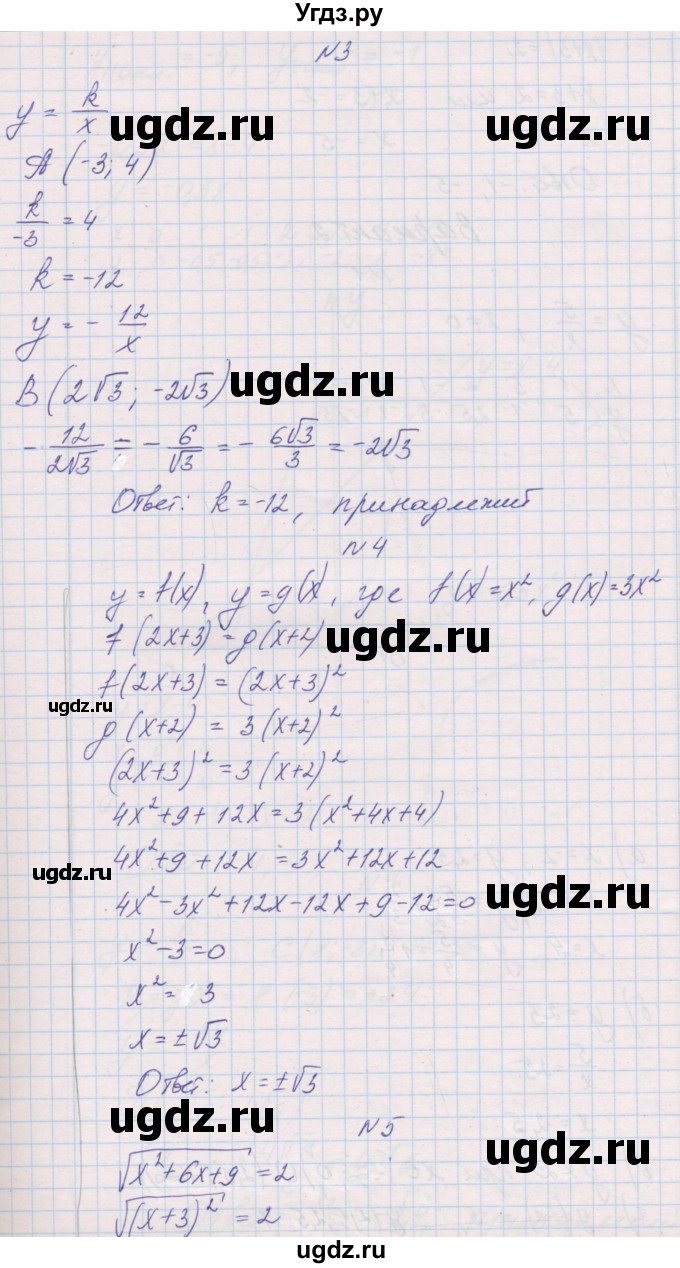 Угдз.ру
№3
y = k/x
ugdz.ru ugdz.ru
A (-3; 4)
k/-3 = 4
k = -12
y = - 12/x
B (2√3; -2√3)
ugdz.ru
- 12/2√3 = - 6/√3 = - 6√3/3 = -2√3
Ответ: k = -12, принадлежит
№4
y = f(x), y = g(x), где f(x) = x², g(x) = 3x²
f(2x+3) = g(x+2)
ugdz.ru
f(2x+3) = (2x+3)²
ugdz.ru
g(x+2) = 3(x+2)²
(2x+3)² = 3(x+2)²
4x²+9+12x = 3(x²+4x+4)
4x²+9+12x = 3x²+12x+12
ugdz.ru
4x²-3x²+12x-12x+9-12=0
ugdz.ru
x²-3=0
x² = 3
x = ±√3
Ответ: x = ±√3
ugdz.ru
№5
ugdz.ru
√x²+6x+9 = 2
√(x+3)² = 2
ugdz.ru